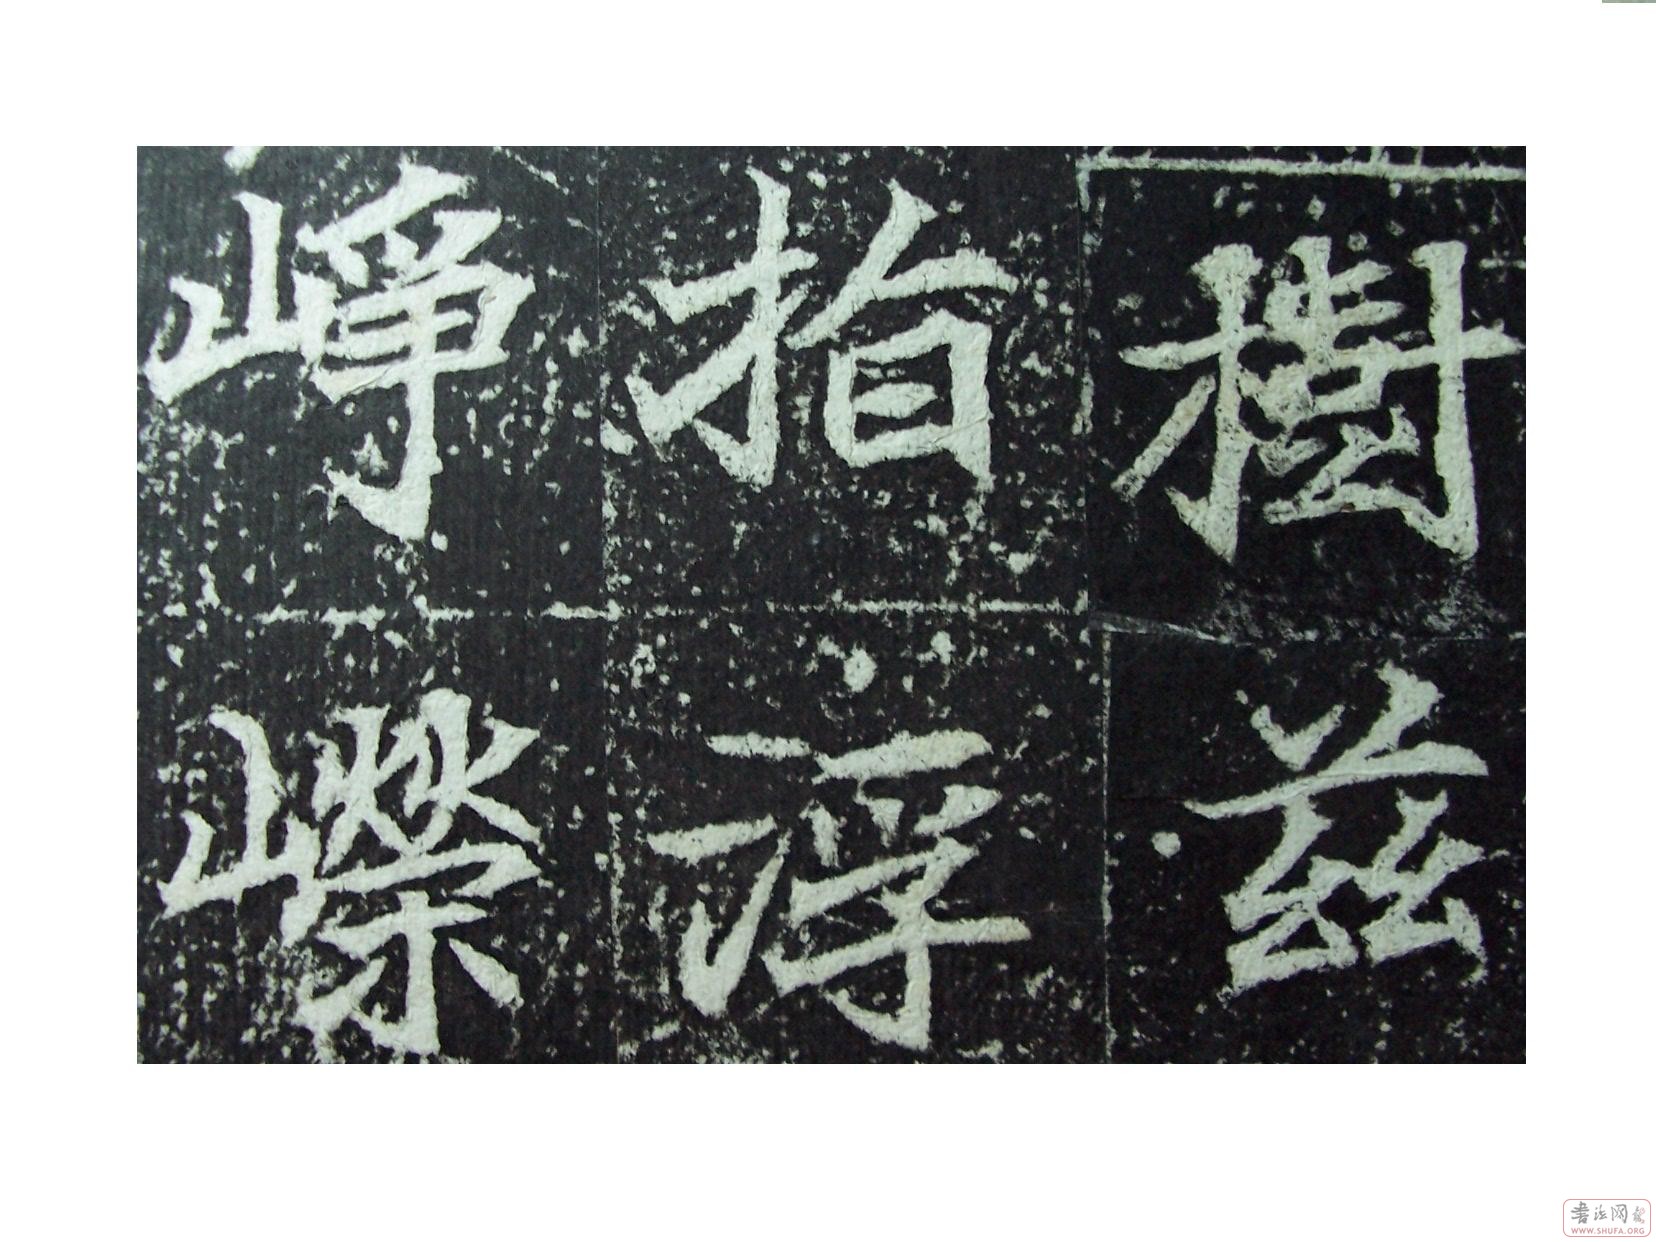 樹茲
指浮
崢嶸
書法网
WWW.SHUFA.ORG